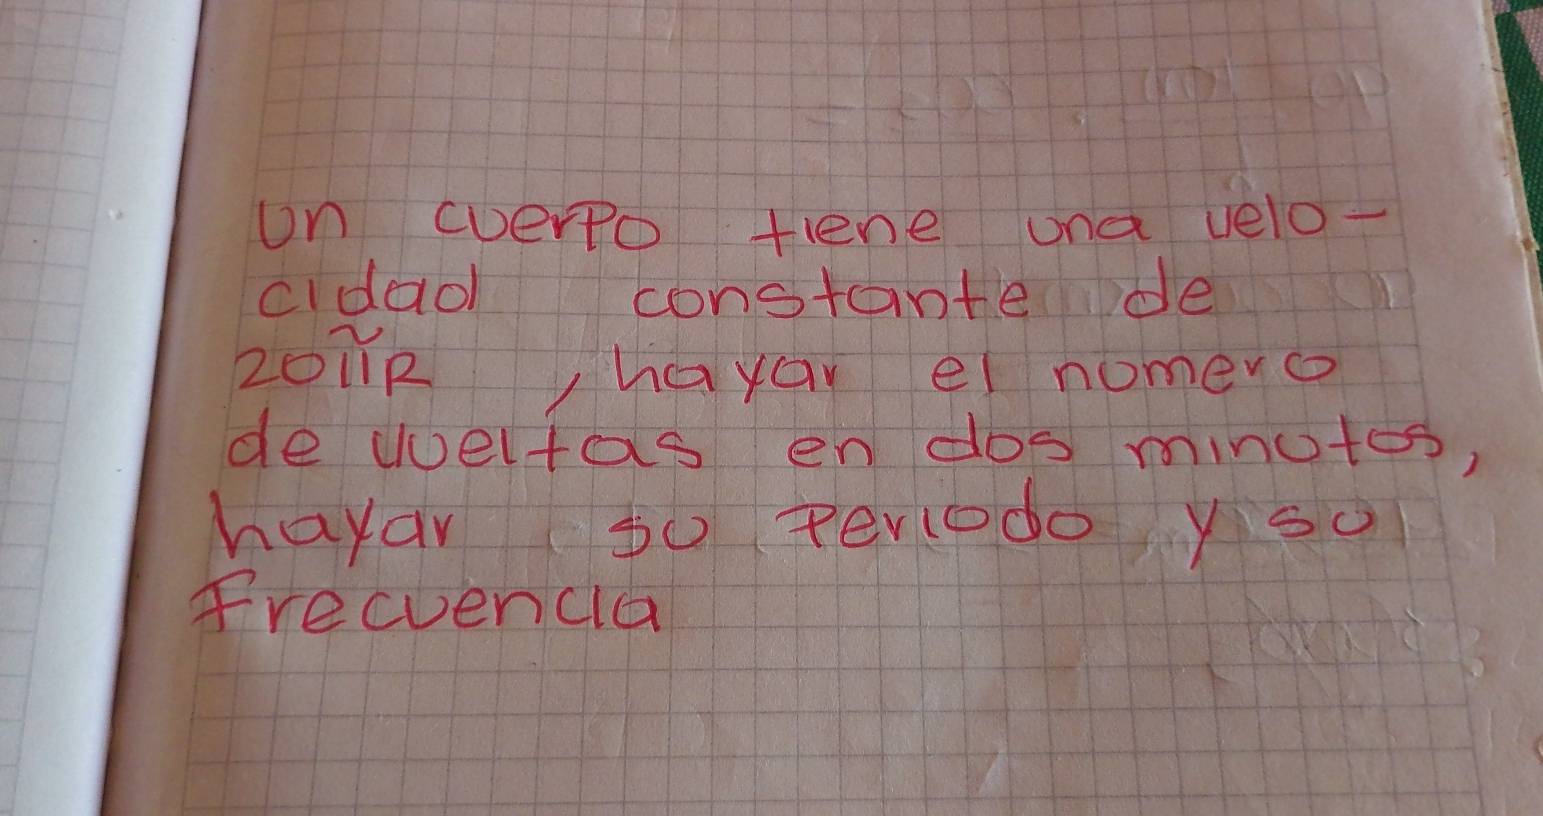 un cuerpo tiene una velo-
cidad constante de
20πR , hayar el numero
de vueltas en dos minutos,
hayar su periodo y su
frecuencia